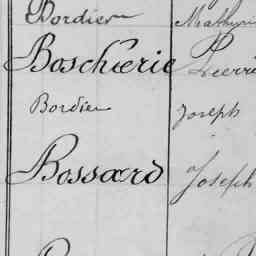 Bordier Mathurin
Boschérie Pierre
Bordier Joseph
Bossard Joseph